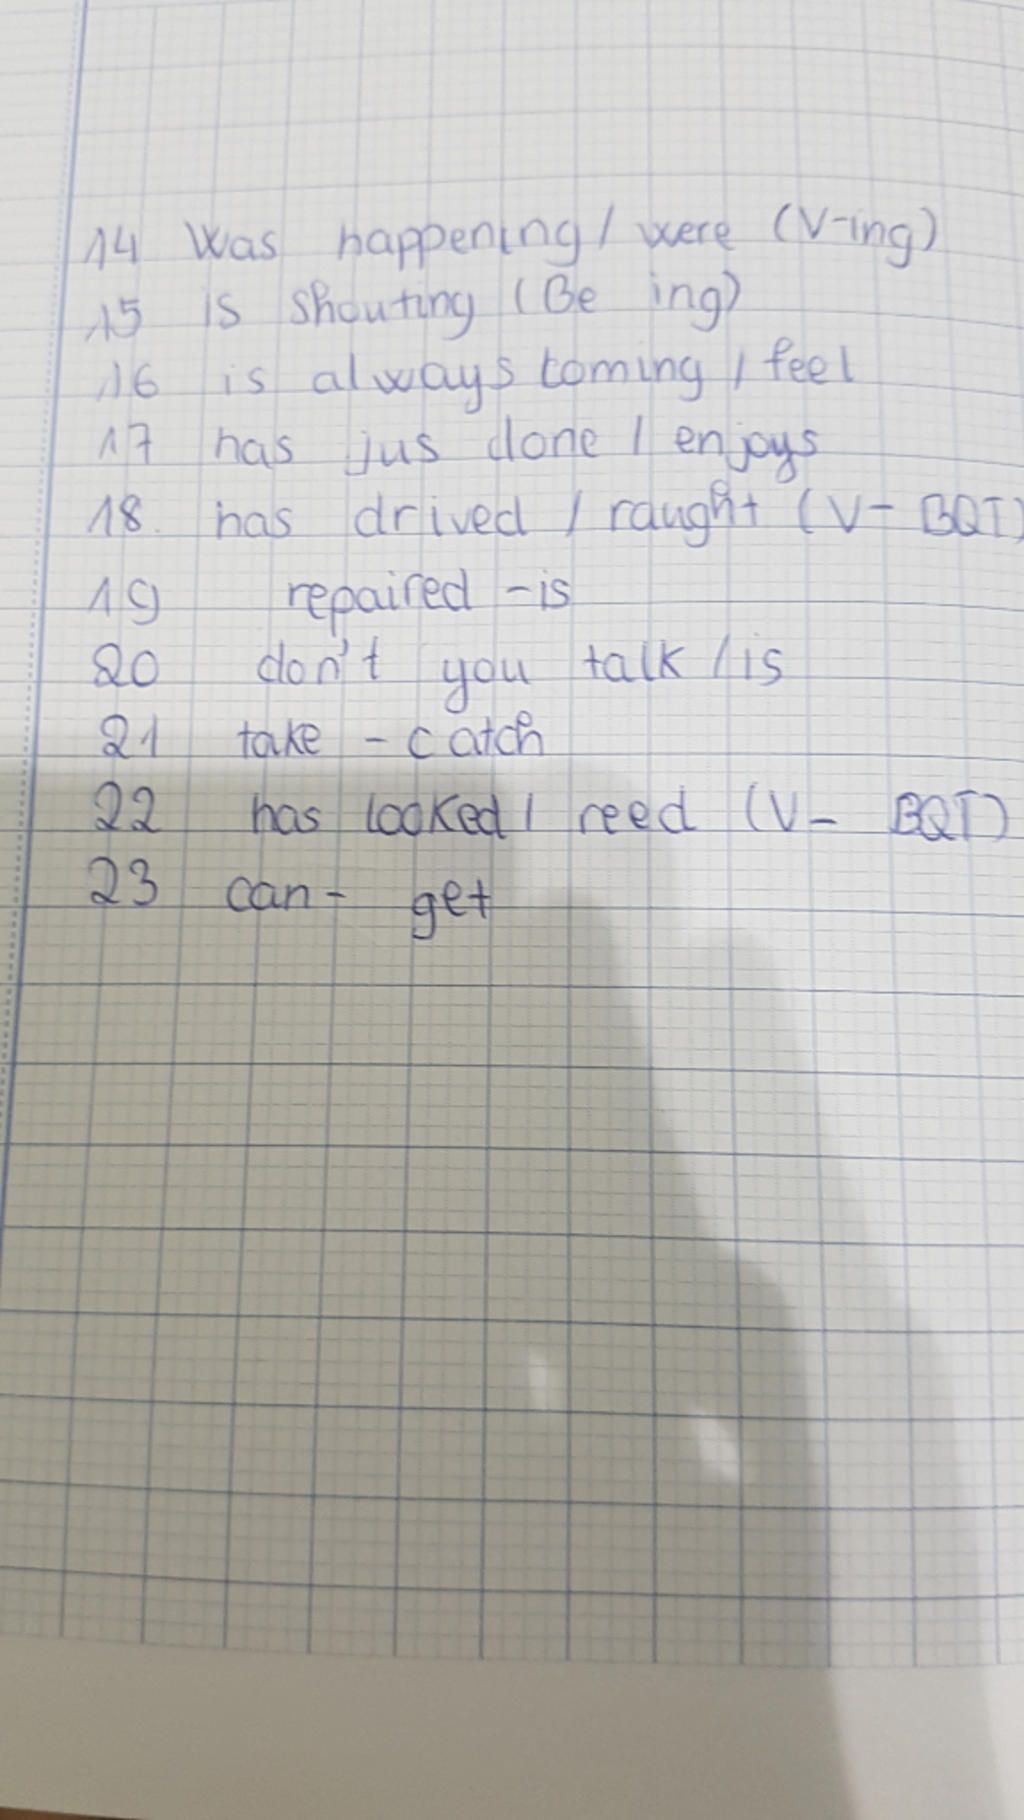 14 Was happening / were (V-ing)
15 is shouting (Be ing)
16 is always coming / feel
17 has jus done / enjoys
18. has drived / raught (V- BQT)
19 repaired - is
20 don't you talk / is
21 take - catch
22 has looked / reed (V- BQT)
23 can - get